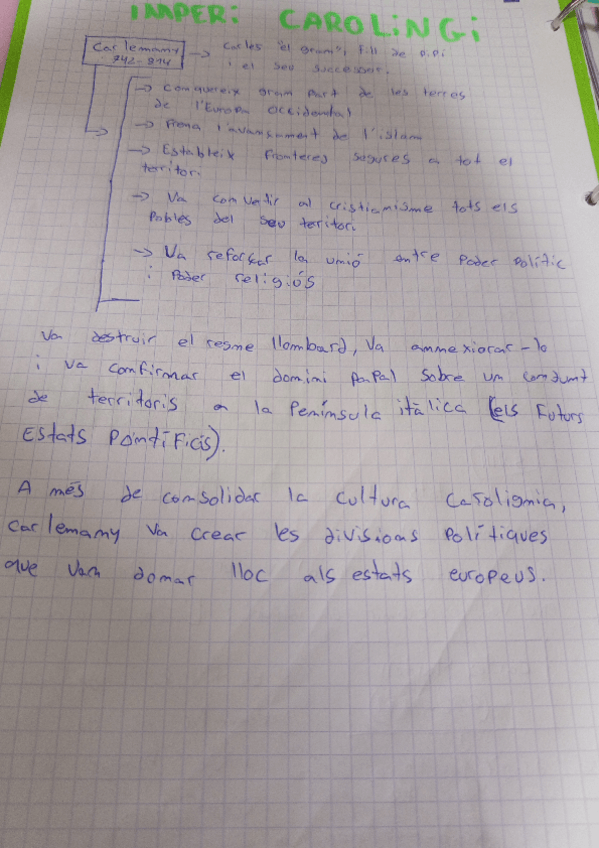 IMPERI CAROLINGI
Carlemany → Carles el gran, fill de Pipi
742-814 i el seu successor.
→ Conquereix gran part de les terres
de l'Europa Occidental
→ Frena l'avançament de l'islam
→ Estableix fronteres segures a tot el
territori
→ Va convertir al cristianisme tots els
Pobles del seu teritori
→ Va reforçar la unió entre Poder Polític
i Poder religiós
Va destruir el regne llombard, Va annexionar-lo
i va confirmar el domini papal sobre un conjunt
de territoris a la Península itàlica (els Futurs
Estats Pontíficis).
A més de consolidar la cultura Carolignia,
Carlemany va crear les divisions Polítiques
que van donar lloc als estats europeus.